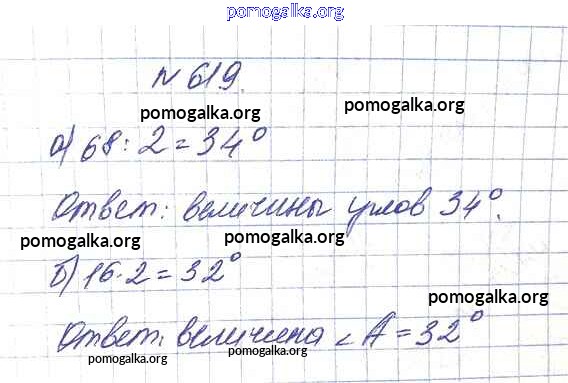 pomogalka.org
№ 619.
pomogalka.org pomogalka.org
а) 68 : 2 = 34°
Ответ: величины углов 34°.
pomogalka.org pomogalka.org
б) 16 · 2 = 32°
pomogalka.org
Ответ: величина ∠ А = 32°
pomogalka.org pomogalka.org